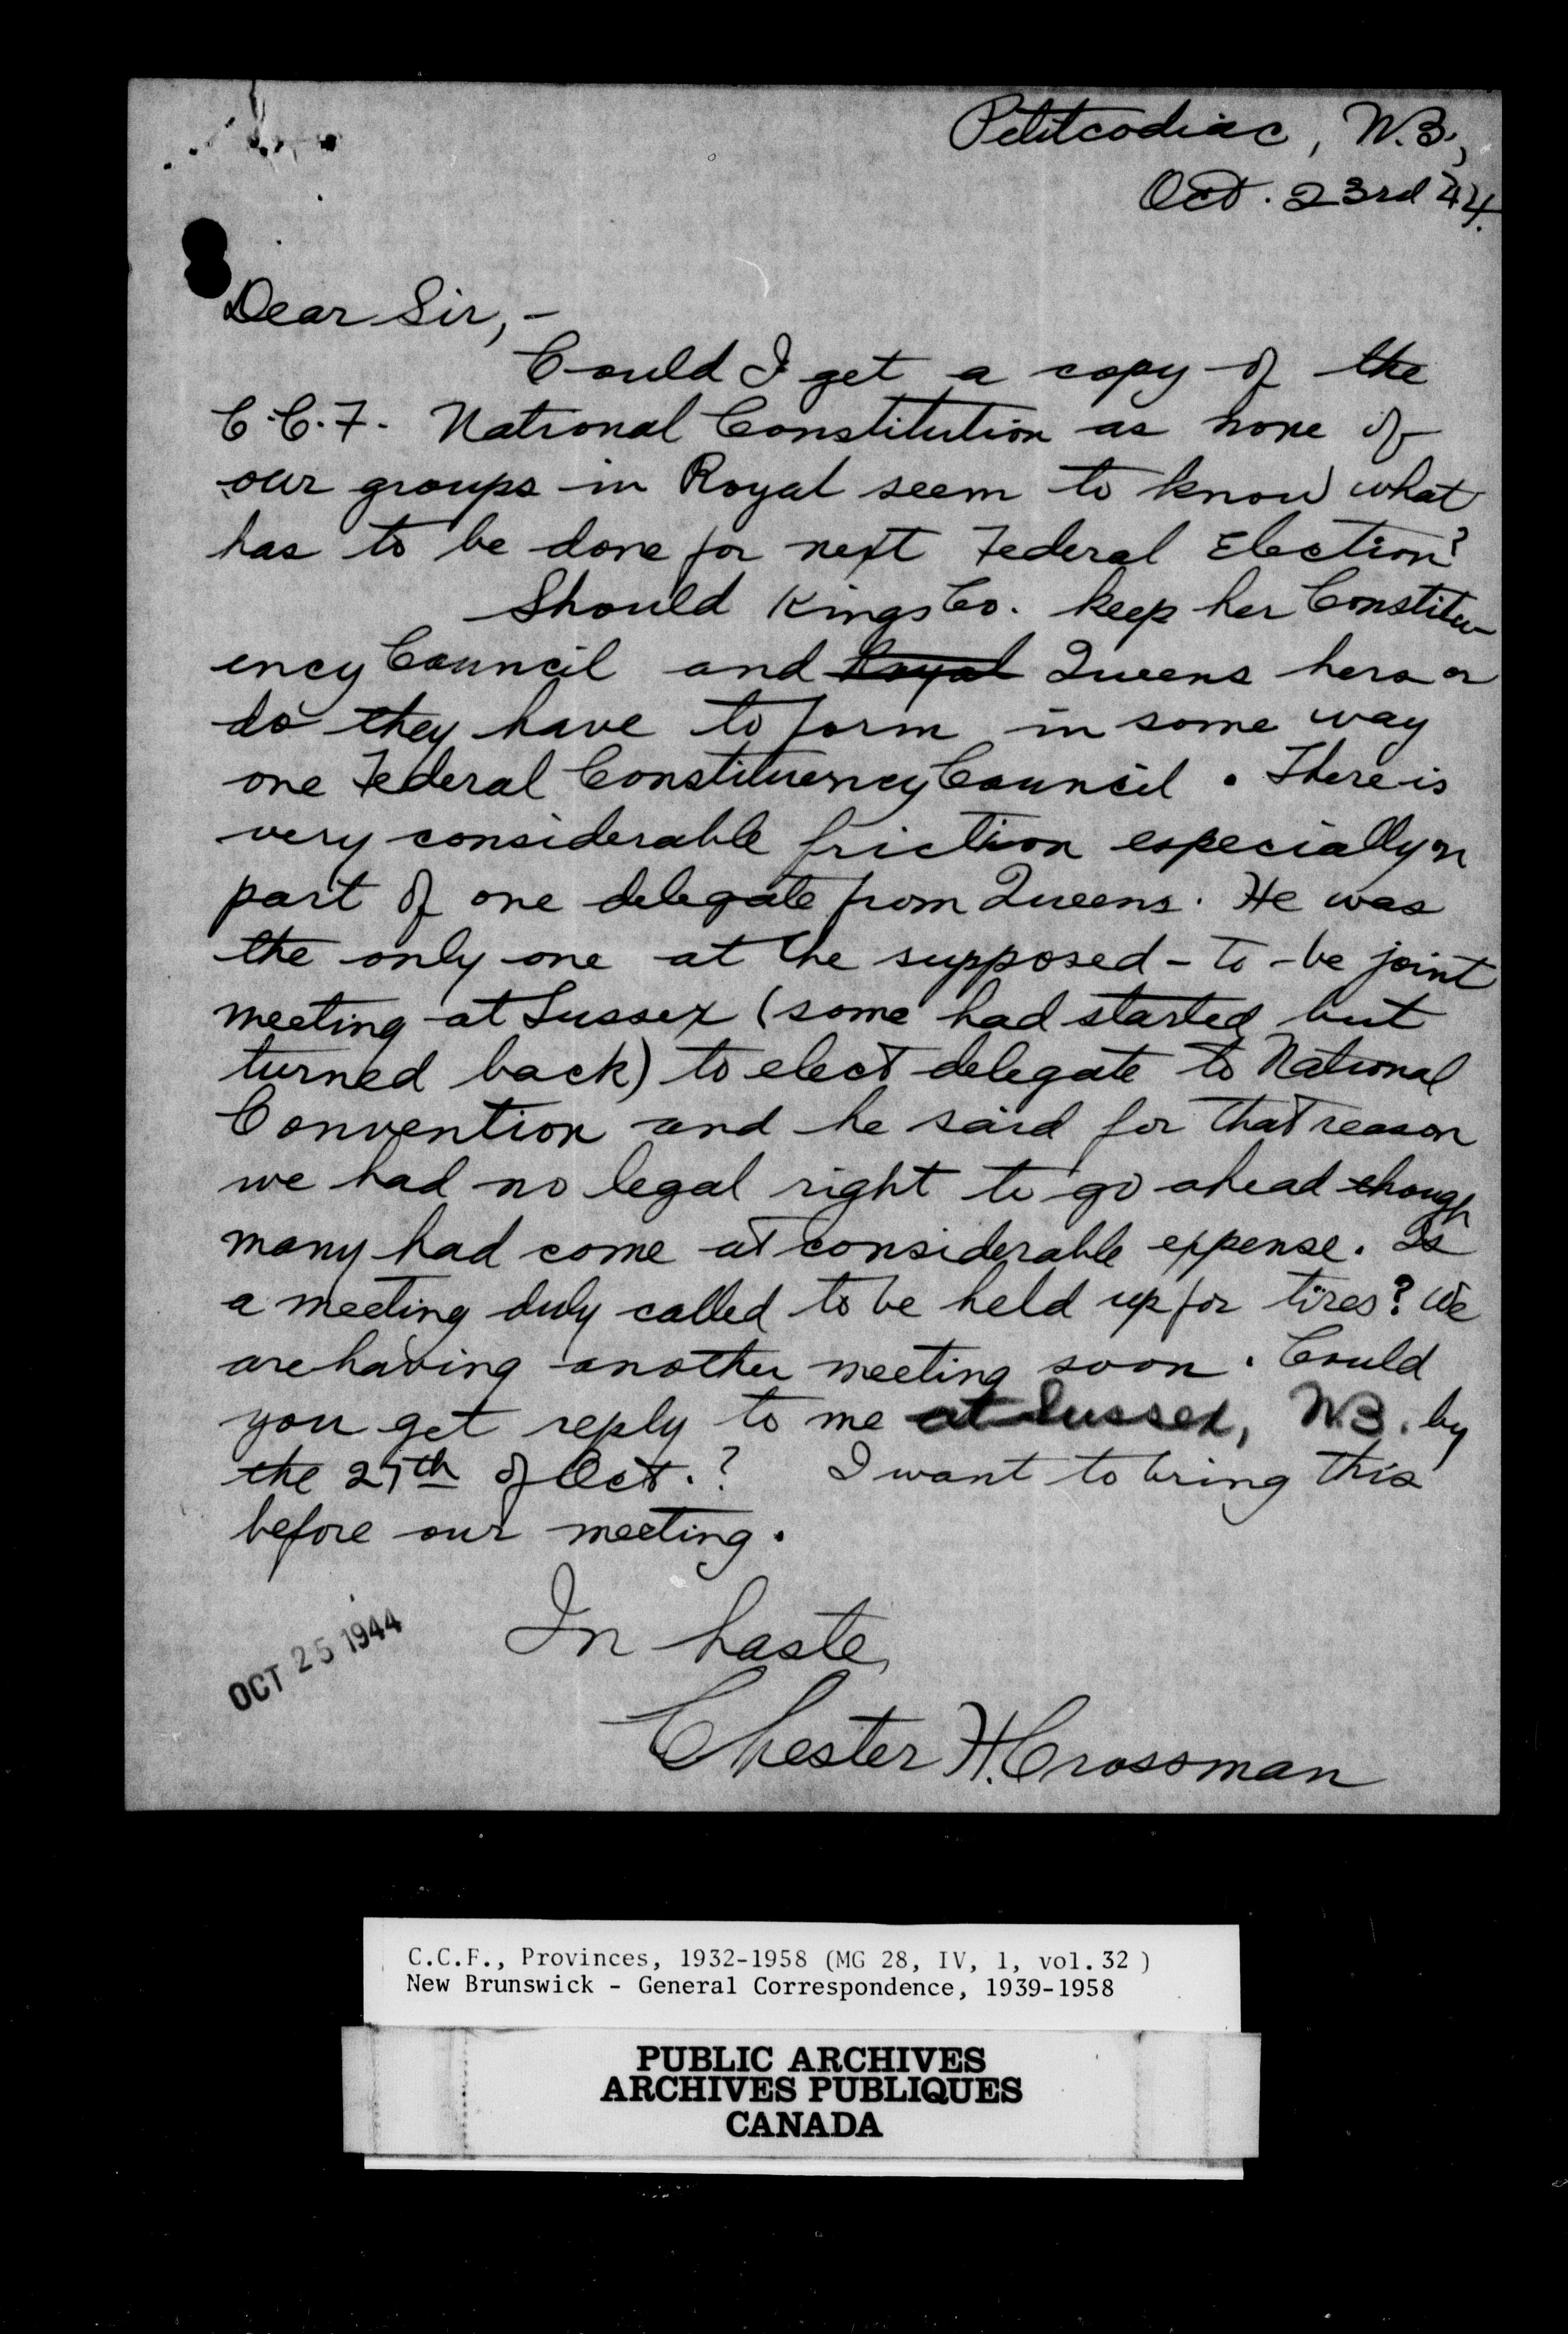 Petitcodiac, N.B.,
Oct. 23rd '44.
Dear Sir, -
Could I get a copy of the
C.C.F. National Constitution as none of
our groups in Royal seem to know what
has to be done for next Federal Election?
Should Kings Co. keep her Constitu-
ency Council and Royal Queens hers or
do they have to form in some way
one Federal Constituency Council. There is
very considerable friction especially on
part of one delegate from Queens. He was
the only one at the supposed-to-be joint
meeting at Sussex (some had started but
turned back) to elect delegate to National
Convention and he said for that reason
we had no legal right to go ahead though
many had come at considerable expense. Is
a meeting duly called to be held up for tires? We
are having another meeting soon. Could
you get reply to me at Sussex, N.B. by
the of Oct.? I want to bring this
before our meeting.
In haste,
OCT 25 1944
Chester H. Crossman
C.C.F., Provinces, 1932-1958 (MG 28, IV, 1, vol. 32 )
New Brunswick - General Correspondence, 1939-1958
PUBLIC ARCHIVES
ARCHIVES PUBLIQUES
CANADA